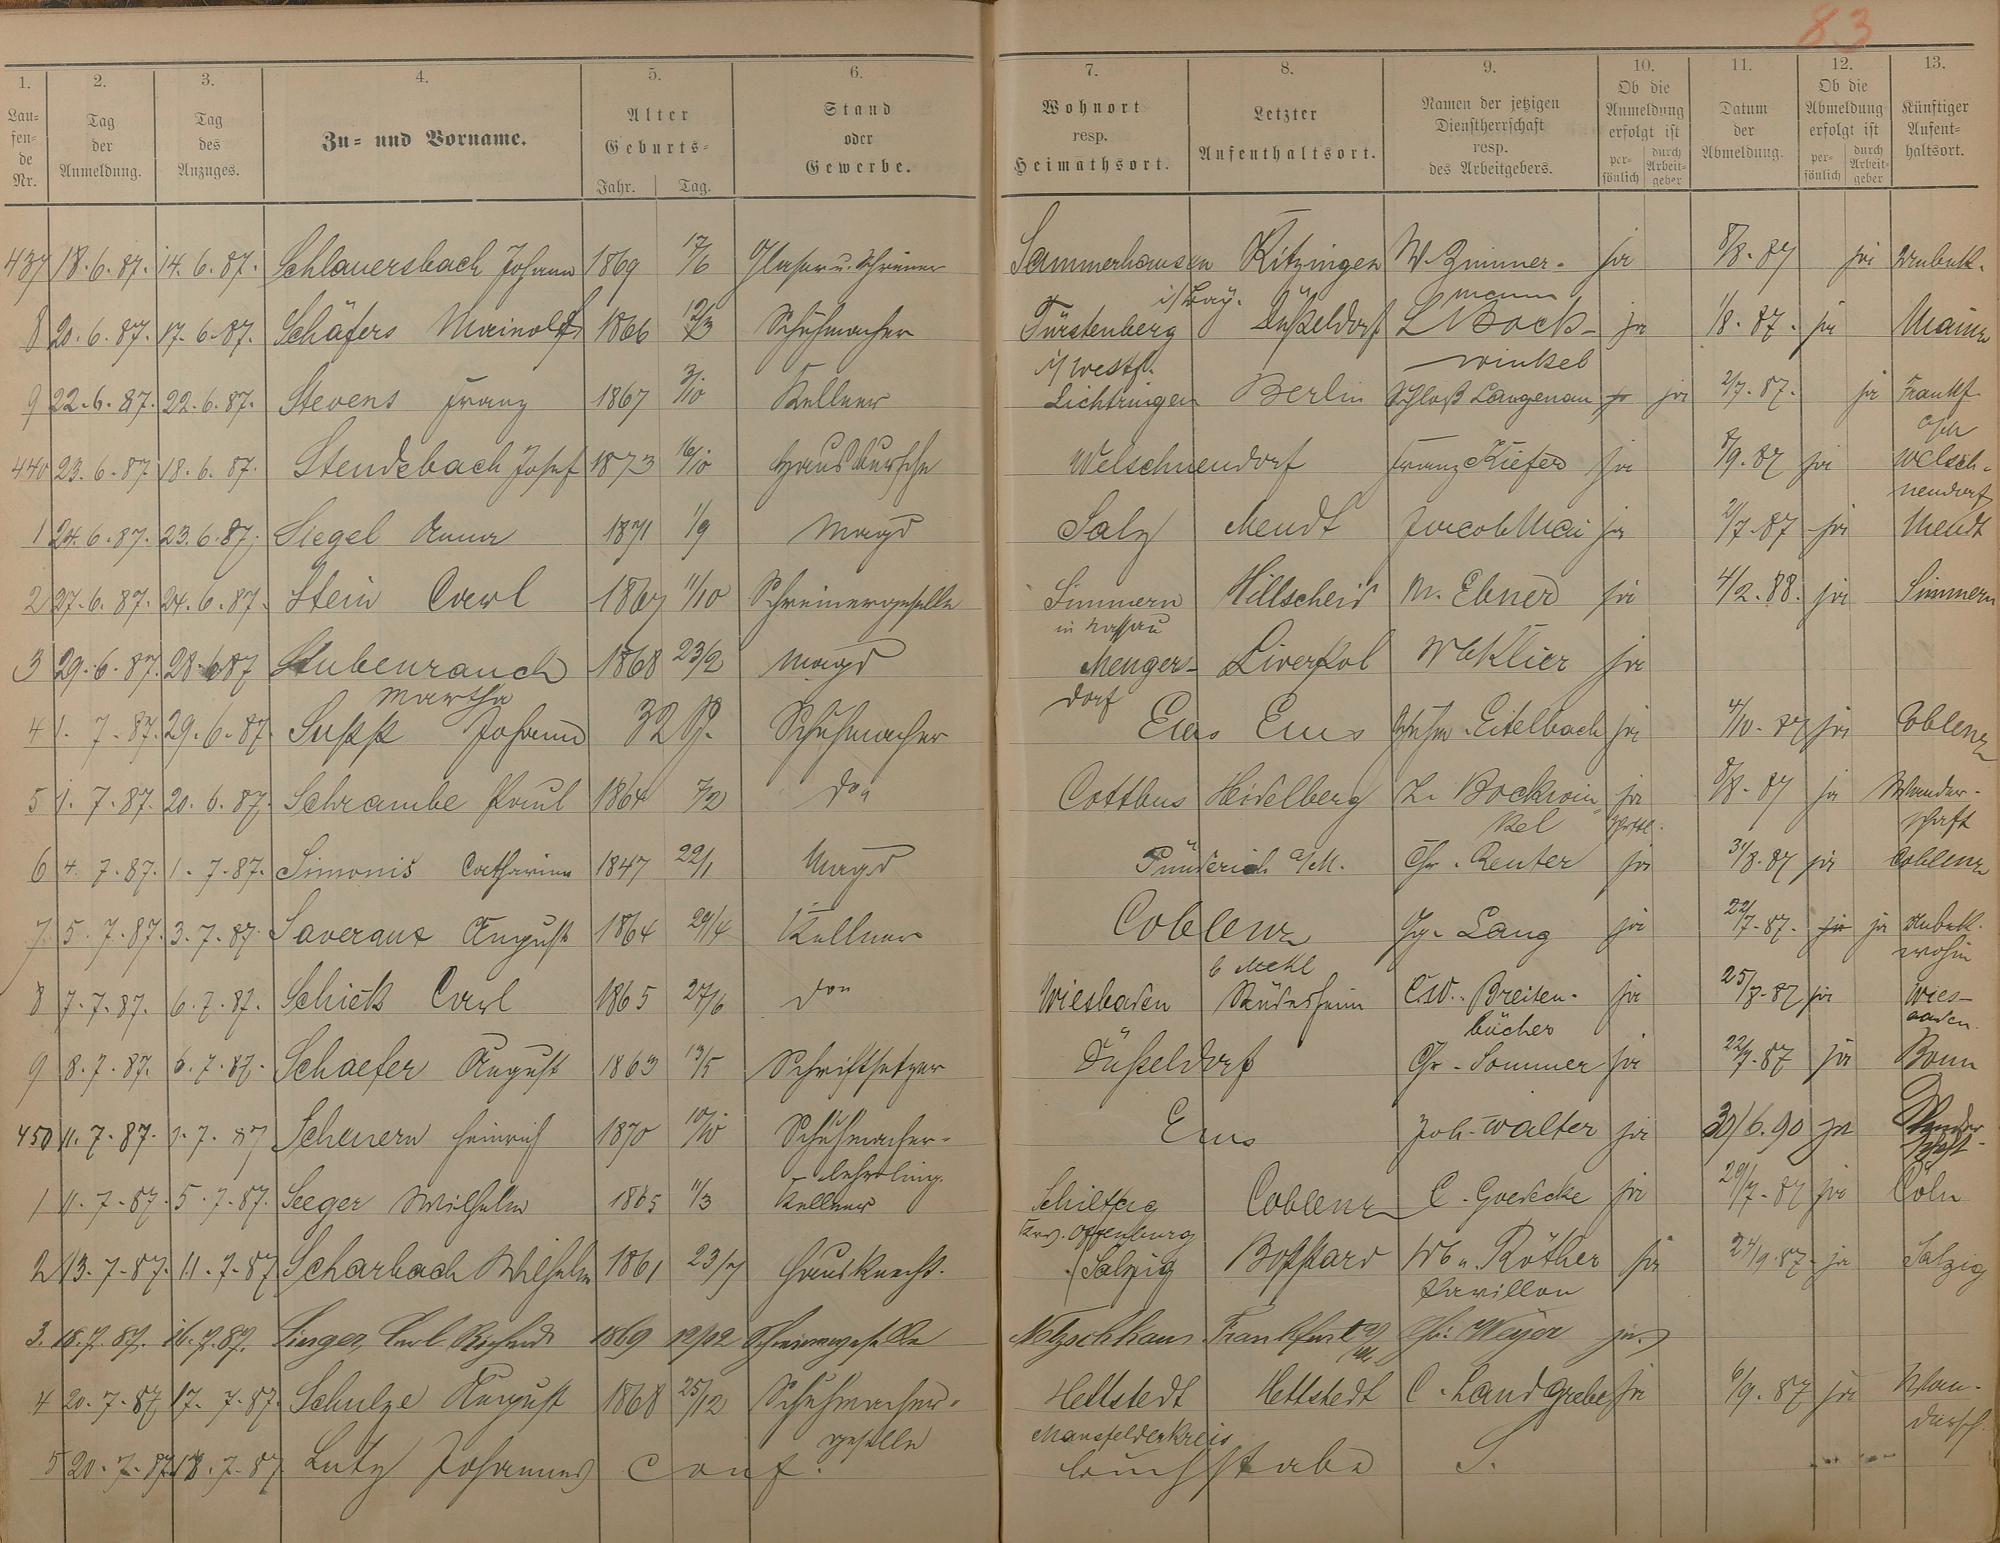 83
1. 2. 3. 4. 5. 6. 7. 8. 9. 10. 11. 12. 13.
Laufende Nr.
Tag der Anmeldung.
Tag des Anzuges.
Zu- und Vorname.
Alter
Geburts-
Jahr. Tag.
Stand oder Gewerbe.
Wohnort resp. Heimathsort.
Letzter Aufenthaltsort.
Namen der jetzigen Dienstherrschaft resp. des Arbeitgebers.
Ob die Anmeldung erfolgt ist
persönlich durch Arbeitgeber
Datum der Abmeldung.
Ob die Abmeldung erfolgt ist
persönlich durch Arbeitgeber
Künftiger Aufenthaltsort.
437 18.6.87. 14.6.87. Schlauersbach Johann 1869 17/6 Glaser u. Schreiner Sommerhausen i/Bay. Kitzingen W. Zimmermann ja 8/8.87 ja unbek.
8 20.6.87. 17.6.87. Schäfers Meinolf 1866 12/3 Schuhmacher Fürstenberg i/Westf. Düsseldorf L Bockwinkel ja 1/8.87. ja Mainz
9 22.6.87. 22.6.87. Stevens Franz 1867 3/10 Kellner Lichtringen Berlin Schloß Langenau ja ja 2/7.87. ja Frankf.
440 23.6.87 18.6.87. Stendebach Josef 1873 16/10 Hausbursche Welschneudorf Franz Kiefer ja 8/9.87 ja Welschneudorf
1 24.6.87. 23.6.87. Siegel Anna 1871 1/9 Magd Salz Mendt Jacob Mai ja 2/7.87 ja Mendt
2 27.6.87. 24.6.87. Stein Carl 1867 11/10 Schreinergeselle Simmern in Nassau Hillscheid M. Ebner ja 4/2.88. ja Simmern
3 29.6.87. 28.6.87 Stubenrauch Martha 1868 23/2 Magd Mengerdorf Liverpol W Klier ja
4 1.7.87. 29.6.87. Supp Johann 32 J. Schuhmacher Ems Ems Eitelbach ja 4/10.87 ja Coblenz
5 1.7.87. 20.6.87. Schrambe Paul 1864 7/2 do Cottbus Heidelberg L. Bockwinkel ja 8/8.87 ja Wanderschaft
6 4.7.87. 1.7.87. Simonis Catharina 1847 22/1 Magd Pünderich a/M. Chr. Reuter ja 31/8.87 ja Coblenz
7 5.7.87. 3.7.87. Saveraux August 1864 29/4 Kellner Coblenz Gg. Lang ja 22/7.87. ja ja unbek. wohin
8 7.7.87. 6.7.87. Schick Carl 1865 27/6 do Wiesbaden b Mehl Rüdesheim Ew. Breitenbücher ja 25/7.87 ja Wiesbaden.
9 8.7.87. 6.7.87. Schaefer August 1863 13/5 Schriftsetzer Düsseldorf Chr. Sommer ja 22/9.87 ja Bonn
450 11.7.87. 1.7.87 Scheuern Heinrich 1870 10/10 Schuhmacherlehrling Ems Joh. Walter ja 30/6.90 ja Wanderschaft.
1 11.7.87. 5.7.87. Seeger Wilhelm 1865 11/3 Kellner Schiltag Krs. Offenburg Coblenz C. Goedecke ja 29/7.87 ja Cöln
2 13.7.87. 11.7.87 Scharbach Wilhelm 1861 23/7 Hausknecht. Salzig Boppard Wb. Röther Pavillon ja 24/9.87. ja Salzig
3. 18.7.87. 16.7.87. Singer, Carl 1869 12/12 Schreinergeselle Netzschkau Frankfurt a/M. Chr. Weyer ja.
4 20.7.87 17.7.87. Schulze August 1868 25/12 Schuhmachergeselle Hettstedt Mansfelderkreis Hettstedt C. Landgrebe ja 6/9.87 ja Wandersch.
5 20.7.87 18.7.87 Lutz Johannes conf. Buchstabe S.